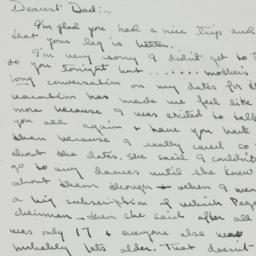 Dearest Dad:-
I'm glad you had a nice trip and
that your leg is better..
I'm very sorry I didn't get to
to you tonight but ....... mother's
long conversation on my dates for
vacation has made me feel like
more because I was excited to talk
you all again & have you back
then because I really could
about the dates. She said I couldn't
go to any dances until she knew
about them through - when I
a big subscription of which
chairman - then she said after all
was only 17 & everyone else was
probably lots older. That doesn't